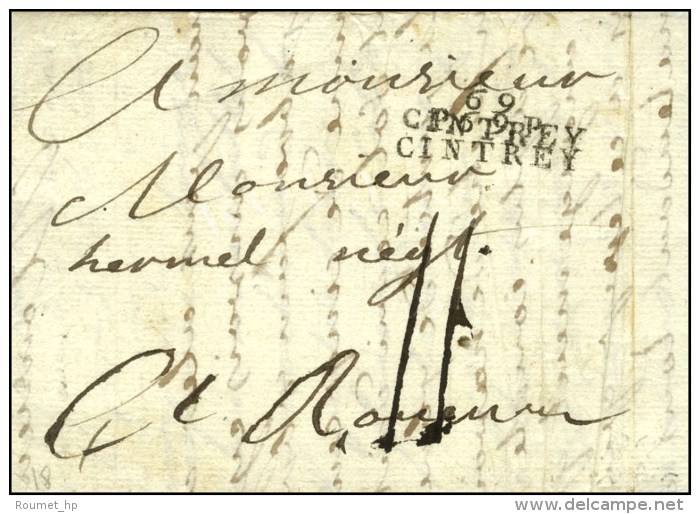 A monsieur
69
CINTREY
P 69 P
CINTREY
Monsieur
hermel négt.
11
A Rouen
18
Roumet_hp
www.delcampe.net